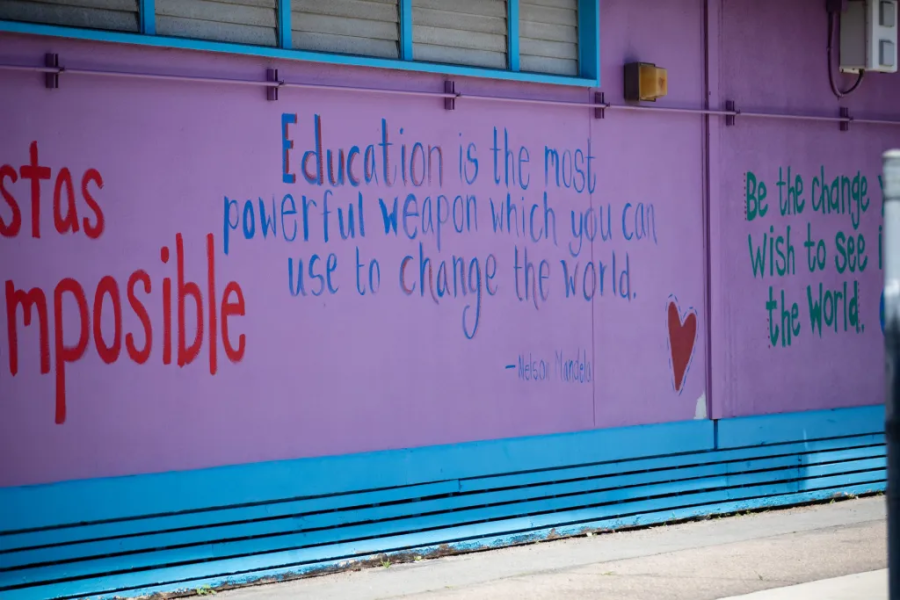 stas
mposible
Education is the most
powerful weapon which you can
use to change the world.
-Nelson Mandela
Be the change
Wish to see
the World.